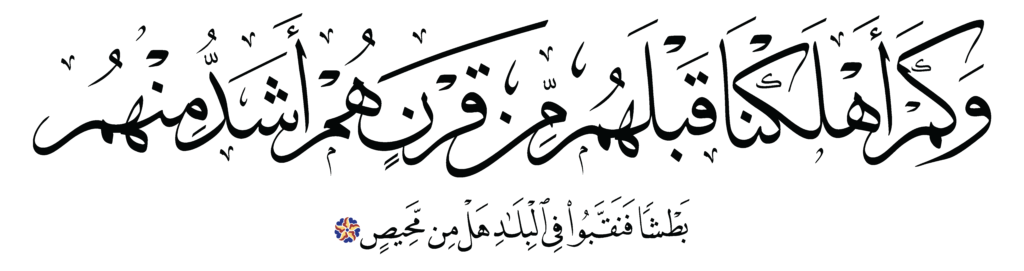 وَكَمْ أَهْلَكْنَا قَبْلَهُم مِّن قَرْنٍ هُمْ أَشَدُّ مِنْهُم
بَطْشًا فَنَقَّبُوا۟ فِى ٱلْبِلَـٰدِ هَلْ مِن مَّحِيصٍ